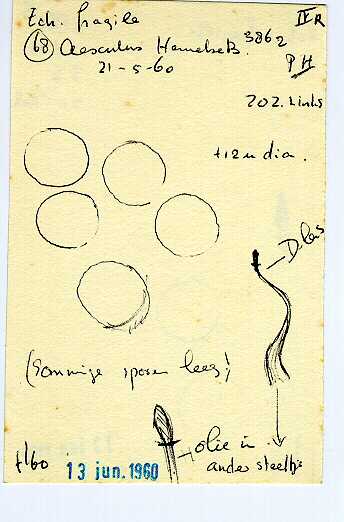 Ech. fragile IV R
(68) Aesculus 3862
21-5-60 PH
202. Links
± 12 u dia.
(Sommige sporen leeg!)
olie in
ander steeltje
±160 13 jun. 1960